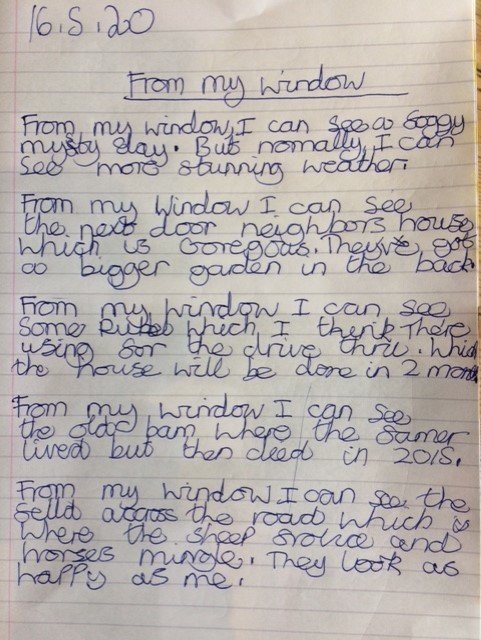 16.5.20
From my window
From my window, I can see a foggy
mysty day. But normally, I can
see more stunning weather.
From my window I can see
the next door neighbors house
which is Goregous. They've got
a bigger garden in the back.
From my window I can see
some which I think There
using for the drive thru. Which
the house will be done in 2 month
From my window I can see
the old barn where the farmer
lived but then died in 2015.
From my window I can see the
feild across the road which is
where the sheep frolice and
horses mingle. They look as
happy as me.